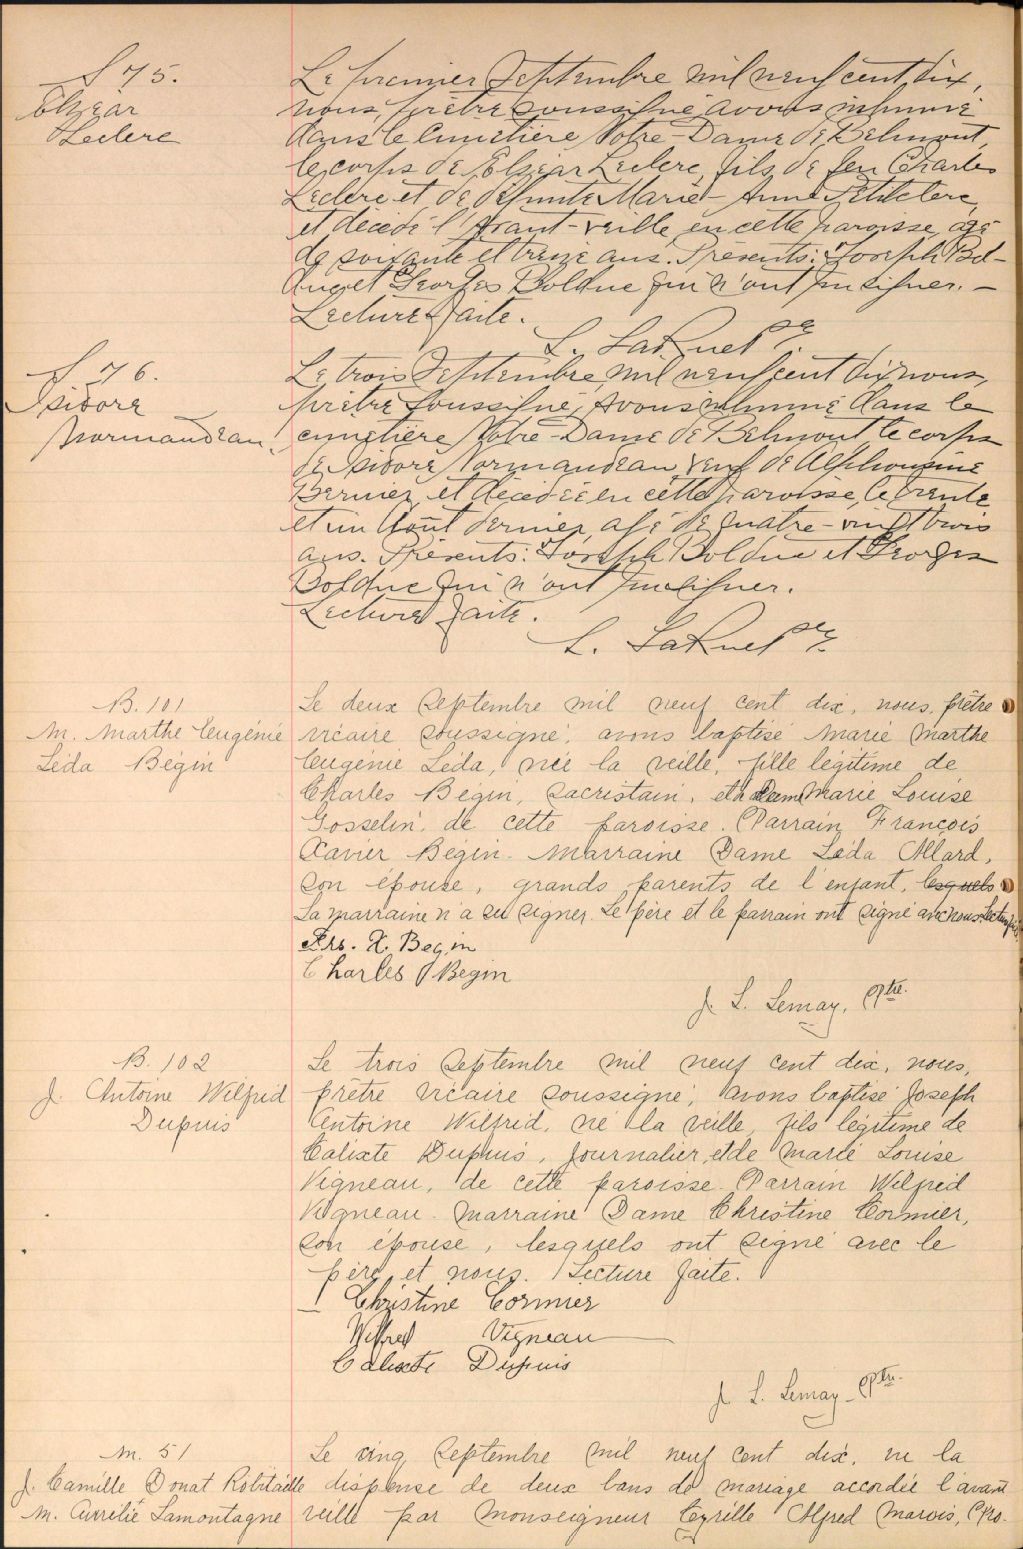 S 75.
Elzéar
Leclerc
Le premier Septembre mil neuf cent dix,
nous, prêtre soussigné, avons inhumé
dans le Cimetière Notre-Dame de Belmont,
le corps de Elzéar Leclerc, fils de feu Charles
Leclerc et de défunte Marie-Anne Petitclerc,
et décédé l'avant-veille en cette paroisse, agé
de soixante et treize ans. Présents: Joseph Bol-
duc et Georges Bolduc qui n'ont pu signer. -
Lecture faite.
L. LaRue Ptre.
S 76.
Isidore
Normandeau
Le trois Septembre, mil neuf cent dix nous,
prêtre soussigné, avons inhumé dans le
cimetière Notre-Dame de Belmont, le corps
de Isidore Normandeau veuf de Alphonsine
Bernier, et décédé en cette paroisse, le trente
et un Août dernier, agé de quatre-vingt trois
ans. Présents: Joseph Bolduc et Georges
Bolduc qui n'ont pu signer.
Lecture faite.
L. LaRue Ptre.
B. 101
M. Marthe Eugénie
Léda Bégin
Le deux Septembre mil neuf cent dix, nous, prêtre
vicaire soussigné, avons baptisé Marie Marthe
Eugénie Léda, née la veille, fille légitime de
Charles Bégin, sacristain, et de Marie Louise
Gosselin, de cette paroisse. Parrain François
Xavier Bégin. Marraine Dame Léda Allard,
son épouse, grands parents de l'enfant, lesquels
La marraine n'a su signer. Le père et le parrain ont signé avec nous. Lecture faite
Frs. X. Begin
Charles Begin
J. L. Lemay, Ptre.
B. 102
J. Antoine Wilfrid
Dupuis
Le trois Septembre mil neuf cent dix, nous,
prêtre vicaire soussigné, avons baptisé Joseph
Antoine Wilfrid, né la veille, fils légitime de
Calixte Dupuis, journalier, et de Marie Louise
Vigneau, de cette paroisse. Parrain Wilfrid
Vigneau. Marraine Dame Christine Cormier,
son épouse, lesquels ont signé avec le
père et nous. Lecture faite.
Christine Cormier
Wilfred Vigneau
Calixte Dupuis
J. L. Lemay Ptre.
M. 51
J. Camille Donat Robitaille
M. Aurélie Lamontagne
Le cinq Septembre mil neuf cent dix, vu la
dispense de deux bans de mariage accordée l'avant
veille par Monseigneur Cyrille Alfred Marois, Pro-